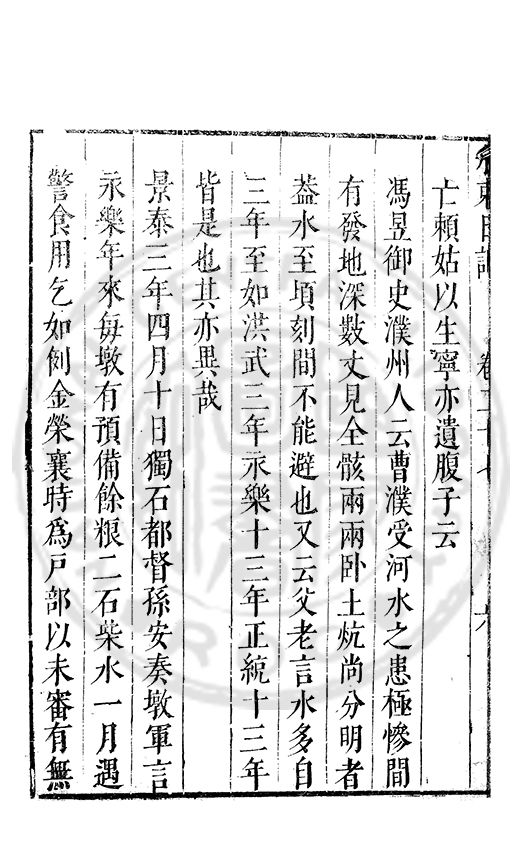 亡賴姑以生寧亦遺腹子云
馮昱御史濮州人云曹濮受河水之患極慘間
有發地深數丈見全骸兩兩卧土炕尚分明者
葢水至頃刻間不能避也又云父老言水多自
三年至如洪武三年永樂十三年正統十三年
皆是也其亦異哉
景泰三年四月十日獨石都督孫安奏墩軍言
永樂年來每墩有預備餘粮二石柴水一月遇
警食用乞如例金榮襄時爲戸部以未審有無